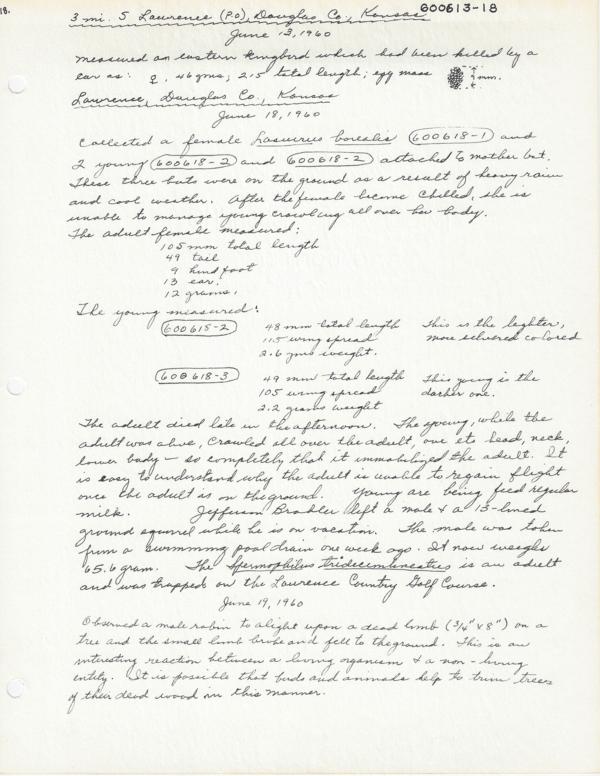 18.
3 mi. S Lawrence (P.O.), Douglas Co., Kansas
600613-18
June 13, 1960
Measured an eastern kingbird which had been killed by a
car as: ♀, 46 gms; 215 total length; egg mass mm.
Lawrence, Douglas Co., Kansas
June 18, 1960
Collected a female Lasiurus borealis (600618-1) and
2 young (600618-2) and (600618-2) attached to mother bat.
These three bats were on the ground as a result of heavy rain
and cool weather. After the female become chilled, she is
unable to manage young crawling all over her body.
The adult female measured:
105 mm total length
49 tail
9 hind foot
13 ear.
12 grams.
The young measured:
600615-2 48 mm total length This is the lighter,
115 wing spread more silvered colored
2.6 gms weight.
600618-3 49 mm total length This young is the
105 wing spread darker one.
2.2 grams weight
The adult died late in the afternoon. The young, while the
adult was alive, crawled all over the adult, one its head, neck,
lower body - so completely that it immobilized the adult. It
is easy to understand why the adult is unable to regain flight
once the adult is on the ground. Young are being feed regular
milk. Jefferson left a mole & a 13-lined
ground squirrel while he is on vacation. The mole was taken
from a swimming pool drain one week ago. It now weighs
65.6 gram. The Spermophilus tridecemlineatus is an adult
and was trapped on the Lawrence Country Golf Course.
June 19, 1960
Observed a male robin to alight upon a dead limb (3/4" x 8") on a
tree and the small limb broke and fell to the ground. This is an
interesting reaction between a living organism & a non-living
entity. It is possible that birds and animals help to trim trees
of their dead wood in this manner.